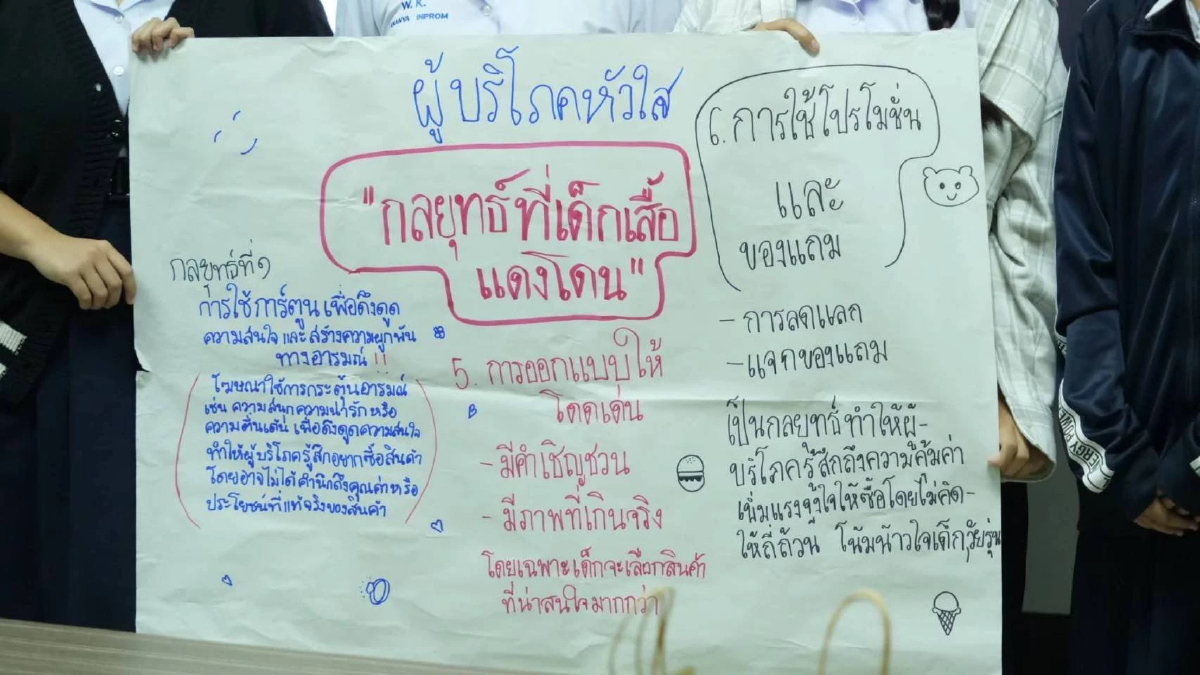 W. K.
INPROM
ผู้บริโภคหัวใส
"กลยุทธ์ที่เด็กเสื้อ
แดงโดน"
กลยุทธ์ที่ ๑
การใช้การ์ตูน เพื่อดึงดูด
ความสนใจ และ สร้างความผูกพัน
ทางอารมณ์ !!
โฆษณาใช้การกระตุ้นอารมณ์
เช่น ความสนุก ความน่ารัก หรือ
ความตื่นเต้น เพื่อดึงดูดความสนใจ
ทำให้ผู้บริโภครู้สึกอยากซื้อสินค้า
โดยอาจไม่ได้คำนึกถึงคุณค่าหรือ
ประโยชน์ที่แท้จริงของสินค้า
5. การออกแบบให้
โดดเด่น
- มีคำเชิญชวน
- มีภาพที่เกินจริง
โดยเฉพาะเด็กจะเลือกสินค้า
ที่น่าสนใจมากกว่า
6. การใช้โปรโมชั่น
และ
ของแถม
- การลดแลก
- แจกของแถม
เป็นกลยุทธ์ทำให้ผู้-
บริโภครู้สึกถึงความคุ้มค่า
เพิ่มแรงจูงใจให้ซื้อโดยไม่คิด-
ให้ถี่ถ้วน โน้มน้าวใจเด็ก,วัยรุ่น